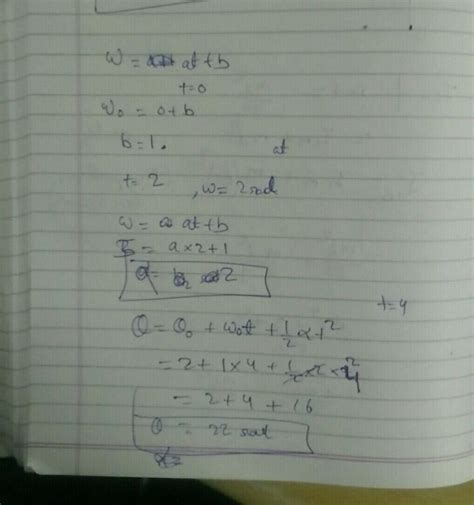 ω = at + b
t=0
ω₀ = 0+b
b=1.
at
t= 2 , ω= 2 rad
ω = at+b
5 = a×2+1
α = 2
t=4
θ = θ₀ + ω₀t + ½ αt²
= 2 + 1×4 + ½ × 2 × 4²
= 2 + 4 + 16
θ = 22 rad